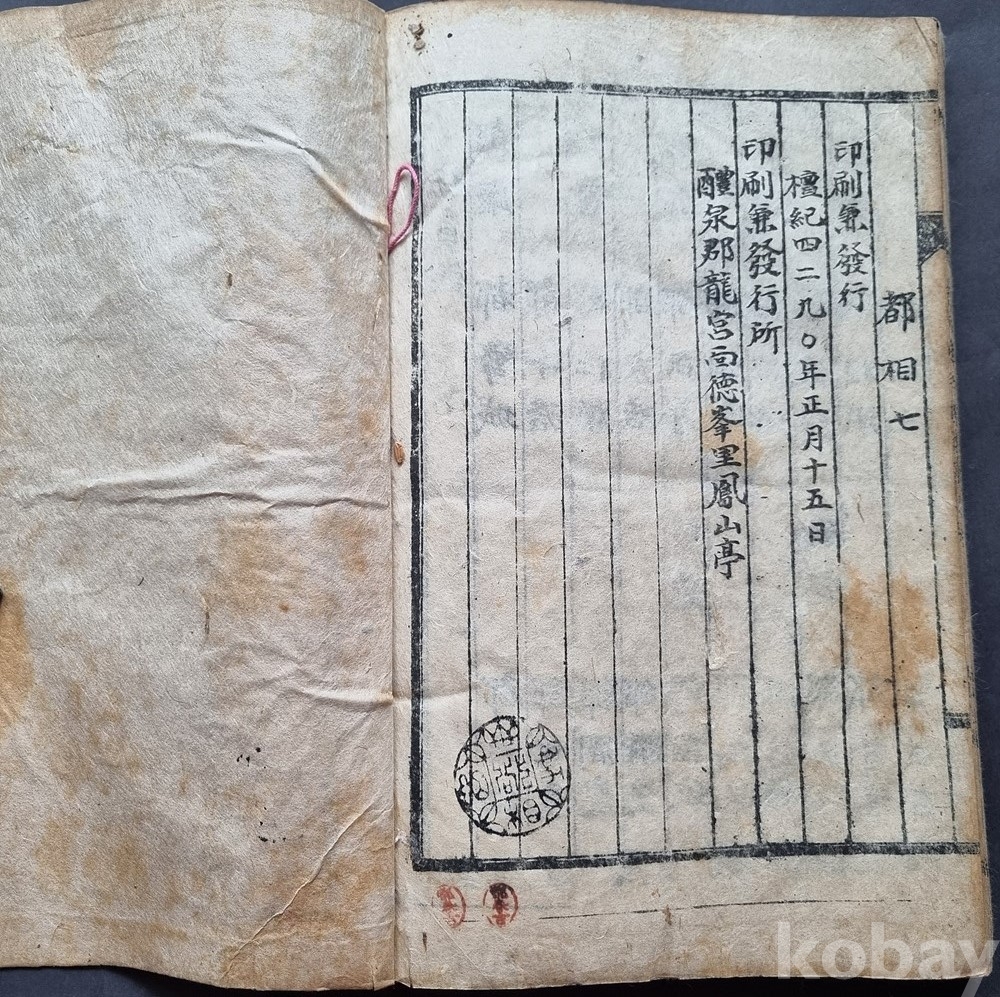 都相七
印刷兼發行
檀紀四二九〇年正月十五日
印刷兼發行所
醴泉郡龍宮面德峯里鳳山亭
kobay